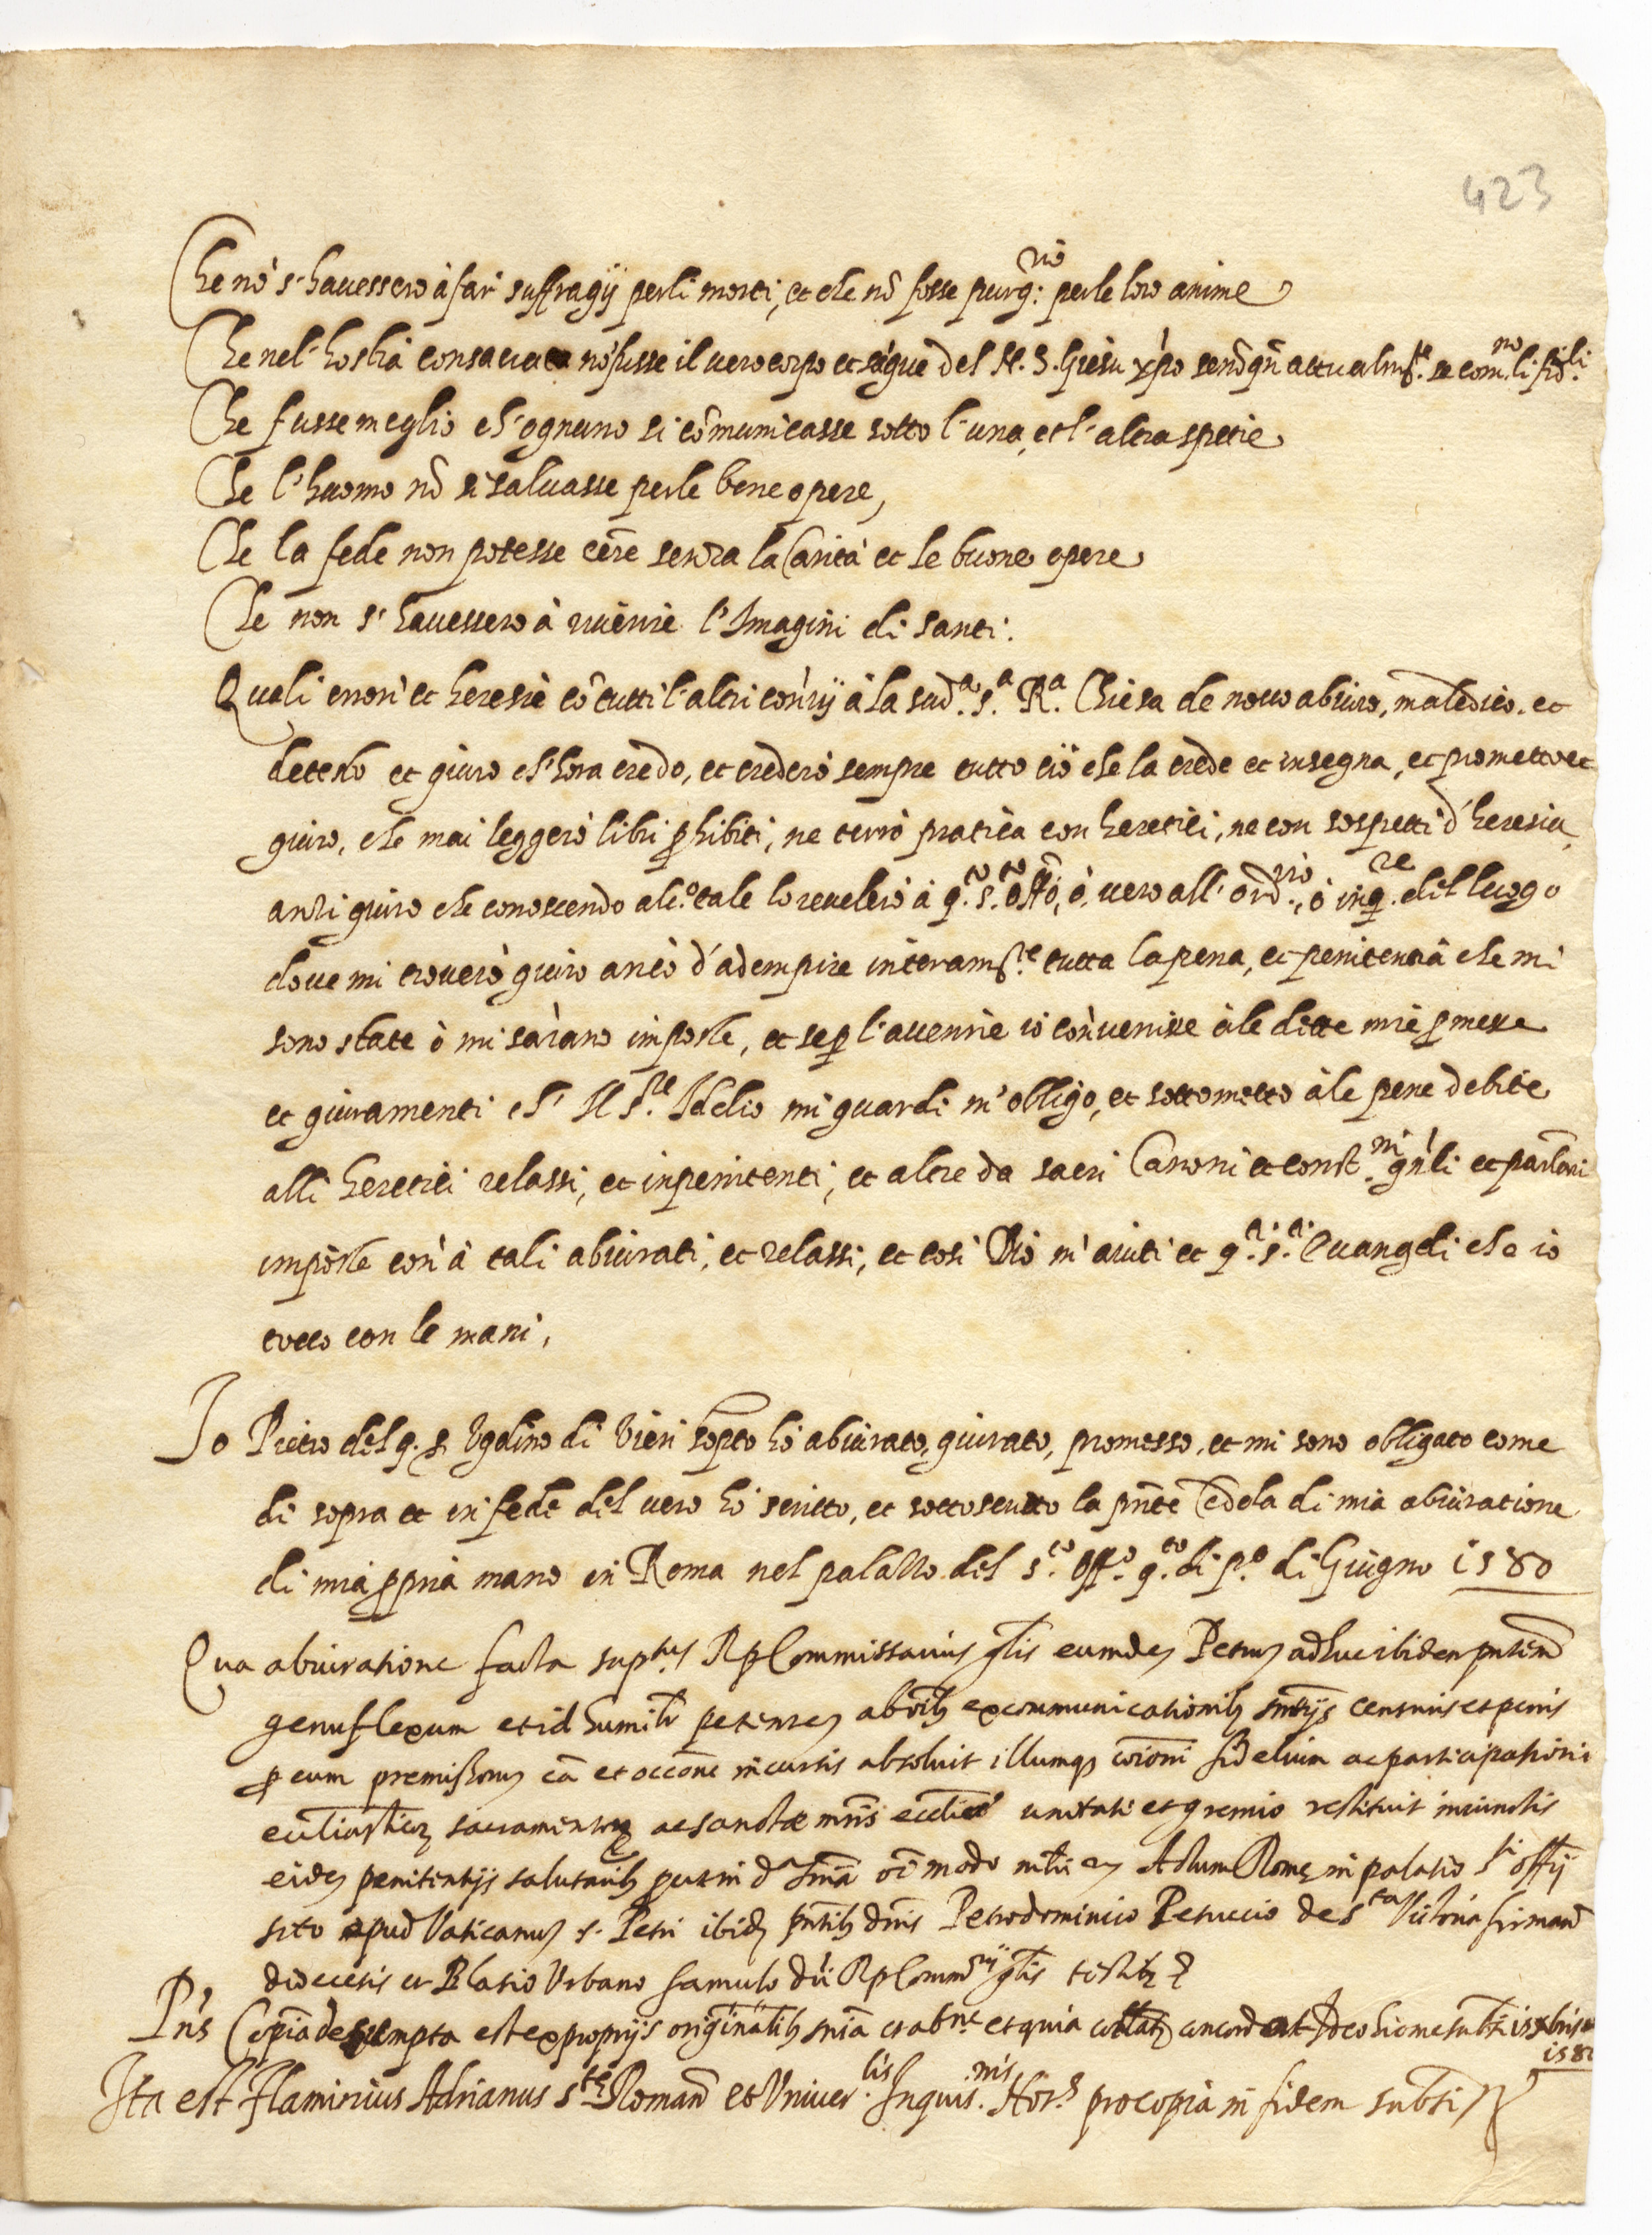 423
Che nõ s'havessero à far suffragij perli morti, et che nõ fosse purg:rio perle loro anime
Che nel'hostia consacrata nõ fusse il vero corpo et sãgue del N. S. Giesu xp̃o senõ qñ attualmẽ.te se com.no li fid.li
Che fusse meglio ch'ognuno si cõmunicasse sotto l'una, et l'altra spetie
Che l'huomo nõ si salvasse perle bene opere,
Che la fede non potesse ẽere senza la Carità et le buone opere
Che non s'havessero à riverire l'Imagini di santi.
Quali errori et heresie cõ tutti l'altri cõrij à la sud.a s.a R.a Chiesa de novo abiuro, maledico, et
detesto et giuro ch'hora credo, et crederò sempre tutto ciò che la crede et insegna, et prometto et
giuro, che mai leggerò libri ꝓhibiti, ne terrò pratica con heretici, ne con sospetti d'heresia,
anzi giuro che conoscendo alc.o tale lo revelerò à q.to s.to offõ, ò vero all'ord.rio, ò inq.re del luogo
dove mi troverò giuro ancò d'adempire interamẽ.te tutta la pena, et penitenza che mi
sono state ò mi sarano imposte, et se ꝑ l'avenire io cõvenisse àle dette mie ꝓmesse
et giuramenti ch' Il s.re Iddio mi guardi m'obligo, et sottometto àle pene debite
alli heretici relassi, et inpenitenti, et altre da sacri Canoni et const.ni gñli et parlari
imposte cõ à tali abiurati, et relassi, et cosi Dio m'aiuti et q.i s.i Evangeli che io
tocco con le mani,
Io Pietro del q. s. Ugolino di Vieri sop̃to hò abiurato, giurato, promesso, et mi sono obligato come
di sopra et in fede del vero hò scritto, et sottoscritto la pñte Cedola di mia abiuratione
di mia ꝓpria mano in Roma nel palazzo del s.to off.o q.to di p.o di Giugno 1580
Qua abiuratione facta sup.tus Rp Commissarius gñlis eumdẽ Petrũ adhuc ibidem pñtem
genuflexum et id humilr petentẽ ab oĩbꝫ excommunicationibꝫ snĩjs censuris et penis
ꝓ eum premissorũ cã et occõne incursis absolvit illumqꝫ cõioni fidelium ac participationi
eccliasticorꝫ sacramentorꝫ ac sanctæ mrĩs eccliæ unitati et gremio restituit iniunctis
eidẽ penitentijs salutaribꝫ put in d.a snĩa oĩ modo mlri &c Actum Romę in palatio s.ti offij
sito apud Vaticanũ s. Petri ibidẽ pñtibꝫ dnis Petrodominico Petrucio de s.ta Victoria firmanẽ
diocesis et Blasio Urbano famulo dñi Rp Comm.rij gñlis testibꝫ &
Pñs Copia desumpta est ex proprijs originalibꝫ snĩa et ab.ne et quia collatꝫ concordat Ideo hic me subsi
1581
Ita est Flaminius Adrianus s.tę Romanę et Univer.lis Inquis.nis Not.s pro copia in fidem subsi